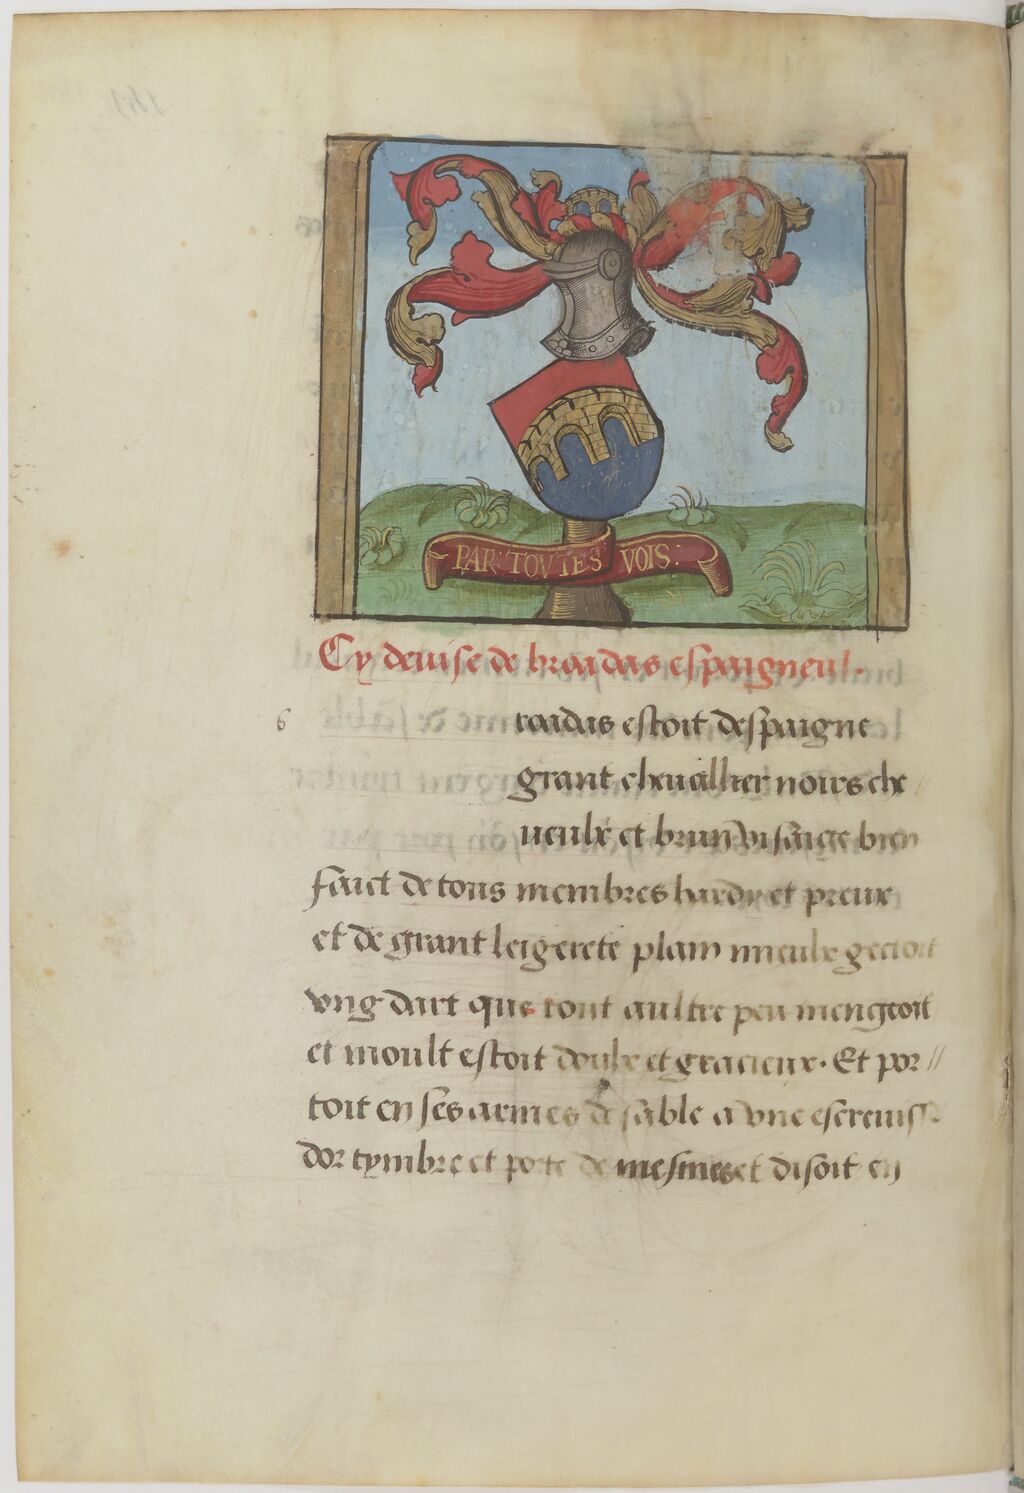 PAR TOVTES VOIS:
Cy deuise de broadas espaigneul.
b
roadas estoit despaigne
grant cheuallier noirs che
ueulx et brun visaige bien
faict de tous membres hardy et preux
et de grant leigerete plain mieulx gectoit
vng dart que tout aultre peu mengeoit
et moult estoit doulx et gracieux. Et por //
toit en ses armes de sable a vne escreuisse
dor tymbre et porte de mesmes et disoit en